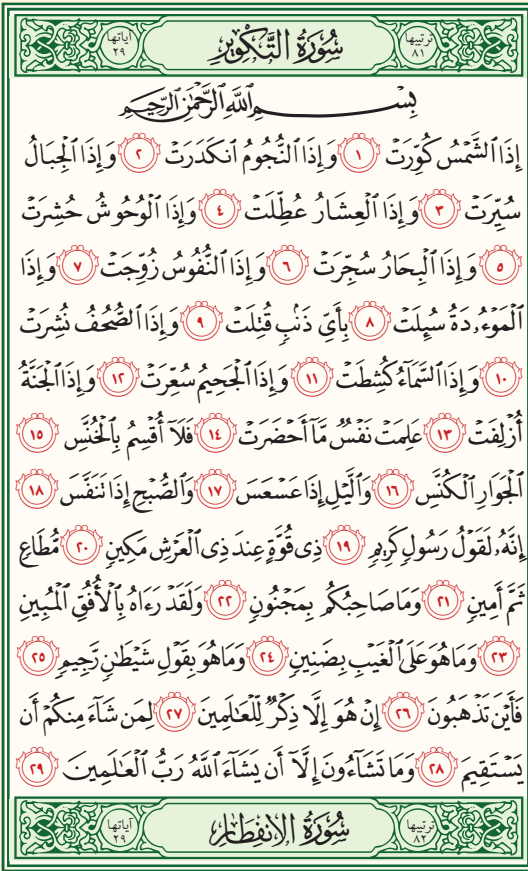 ترتيبها ٨١ سُورَةُ التَّكْوِيرِ آياتها ٢٩
بِسْمِ ٱللَّهِ ٱلرَّحْمَٰنِ ٱلرَّحِيمِ
إِذَا ٱلشَّمْسُ كُوِّرَتْ ١ وَإِذَا ٱلنُّجُومُ ٱنكَدَرَتْ ٢ وَإِذَا ٱلْجِبَالُ
سُيِّرَتْ ٣ وَإِذَا ٱلْعِشَارُ عُطِّلَتْ ٤ وَإِذَا ٱلْوُحُوشُ حُشِرَتْ
٥ وَإِذَا ٱلْبِحَارُ سُجِّرَتْ ٦ وَإِذَا ٱلنُّفُوسُ زُوِّجَتْ ٧ وَإِذَا
ٱلْمَوْءُۥدَةُ سُئِلَتْ ٨ بِأَيِّ ذَنۢبٍ قُتِلَتْ ٩ وَإِذَا ٱلصُّحُفُ نُشِرَتْ
١٠ وَإِذَا ٱلسَّمَآءُ كُشِطَتْ ١١ وَإِذَا ٱلْجَحِيمُ سُعِّرَتْ ١٢ وَإِذَا ٱلْجَنَّةُ
أُزْلِفَتْ ١٣ عَلِمَتْ نَفْسٌ مَّآ أَحْضَرَتْ ١٤ فَلَآ أُقْسِمُ بِٱلْخُنَّسِ ١٥
ٱلْجَوَارِ ٱلْكُنَّسِ ١٦ وَٱلَّيْلِ إِذَا عَسْعَسَ ١٧ وَٱلصُّبْحِ إِذَا تَنَفَّسَ ١٨
إِنَّهُۥ لَقَوْلُ رَسُولٍ كَرِيمٍ ١٩ ذِى قُوَّةٍ عِندَ ذِى ٱلْعَرْشِ مَكِينٍ ٢٠ مُّطَاعٍ
ثَمَّ أَمِينٍ ٢١ وَمَا صَاحِبُكُم بِمَجْنُونٍ ٢٢ وَلَقَدْ رَءَاهُ بِٱلْأُفُقِ ٱلْمُبِينِ
٢٣ وَمَا هُوَ عَلَى ٱلْغَيْبِ بِضَنِينٍ ٢٤ وَمَا هُوَ بِقَوْلِ شَيْطَٰنٍ رَّجِيمٍ ٢٥
فَأَيْنَ تَذْهَبُونَ ٢٦ إِنْ هُوَ إِلَّا ذِكْرٌ لِّلْعَٰلَمِينَ ٢٧ لِمَن شَآءَ مِنكُمْ أَن
يَسْتَقِيمَ ٢٨ وَمَا تَشَآءُونَ إِلَّآ أَن يَشَآءَ ٱللَّهُ رَبُّ ٱلْعَٰلَمِينَ ٢٩
ترتيبها ٨٢ سُورَةُ الانفِطَارِ آياتها ٢٩